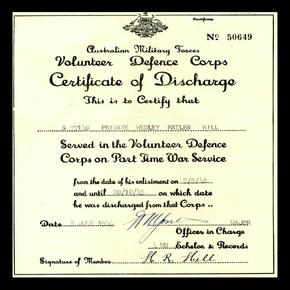 Certificate
No 50649
Australian Military Forces
Volunteer Defence Corps
Certificate of Discharge
This is to Certify that
PRIVATE HEDLEY RATLEW HILL
Served in the Volunteer Defence
Corps on Part Time War Service
from the date of his enlistment on 7/5/42
and until 20/10/45 on which date
he was discharged from that Corps ..
Date MAJOR
Officer in Charge
4 MD Echelon & Records
Signature of Member H R Hill